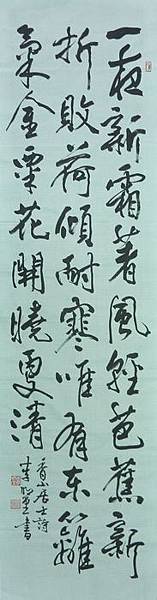 一夜新霜著風輕芭蕉新
折敗荷傾耐寒唯有东籬
菊金粟花開曉更清
香山居士詩
李書